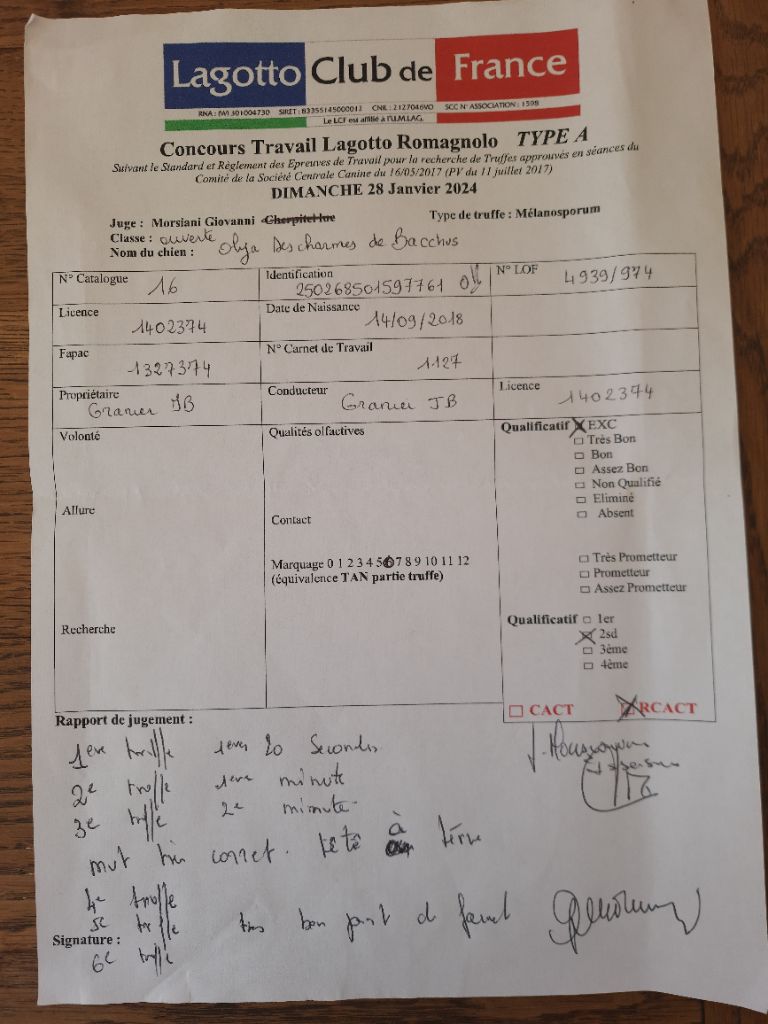 Lagotto Club de France
RNA : W1301004730 SIRET : 83355145000012 CNIL : 2127046VO SCC N° ASSOCIATION : 1598
Le LCF est affilié à l'U.M.LAG.
Concours Travail Lagotto Romagnolo TYPE A
Suivant le Standard et Règlement des Epreuves de Travail pour la recherche de Truffes approuvés en séances du
Comité de la Société Centrale Canine du 16/05/2017 (PV du 11 juillet 2017)
DIMANCHE 28 Janvier 2024
Juge : Morsiani Giovanni Type de truffe : Mélanosporum
Classe : ouverte
Nom du chien : Olga Des charmes de Bacchus
N° Catalogue 16 Identification 250268501597761 N° LOF 4939/974
Licence 1402374 Date de Naissance 14/09/2018
Fapac 1327374 N° Carnet de Travail 1127
Propriétaire Granier JB Conducteur Granier JB Licence 1402374
Volonté Qualités olfactives Qualificatif EXC
Très Bon
Bon
Assez Bon
Non Qualifié
Eliminé
Absent
Allure
Contact
Marquage 0 1 2 3 4 5 6 7 8 9 10 11 12
(équivalence TAN partie truffe)
Très Prometteur
Prometteur
Assez Prometteur
Recherche
Qualificatif 1er
2sd
3ème
4ème
CACT RCACT
Rapport de jugement :
1ere truffe 1eres 20 Secondes
2e truffe 1ere minute
3e truffe 2e minute
très correct. à terre
4e truffe
5e truffe très bon
Signature :
6e truffe